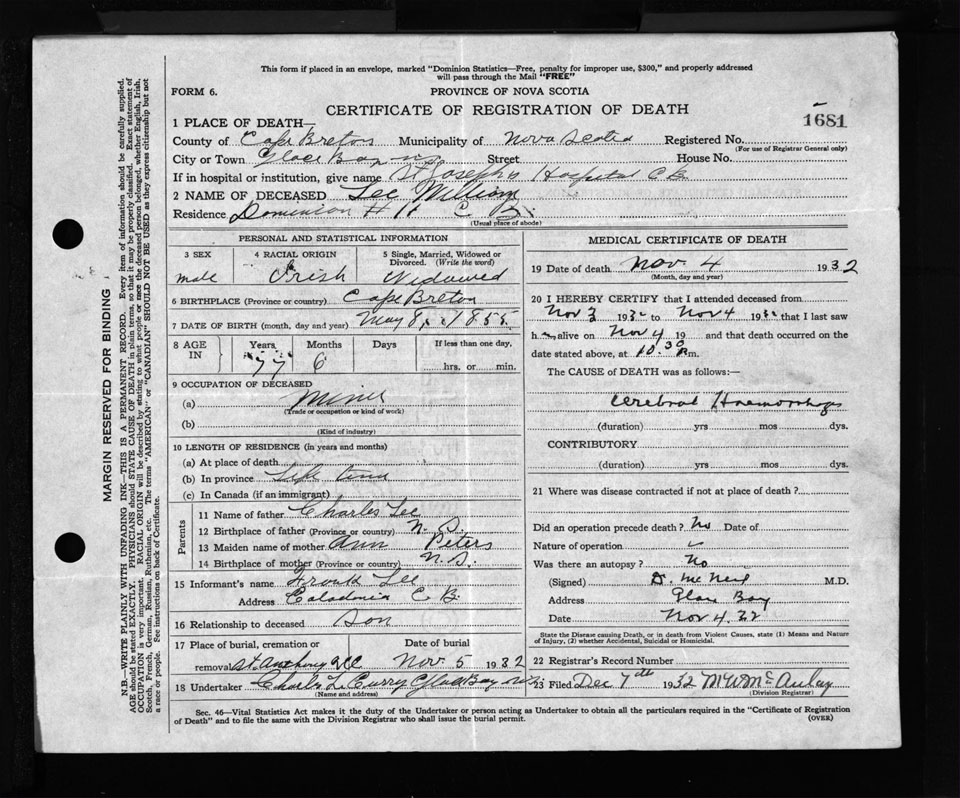 This form if placed in an envelope, marked "Dominion Statistics—Free, penalty for improper use, $300," and properly addressed
will pass through the Mail "FREE"
FORM 6.
PROVINCE OF NOVA SCOTIA
CERTIFICATE OF REGISTRATION OF DEATH
1681
1 PLACE OF DEATH—
County of Cape Breton Municipality of Nova Scotia Registered No.
(For use of Registrar General only)
City or Town Glace Bay NS Street House No.
If in hospital or institution, give name St Joseph's Hospital C B
2 NAME OF DECEASED Lee William
Residence Dominion C B.
(Usual place of abode)
PERSONAL AND STATISTICAL INFORMATION
3 SEX male
4 RACIAL ORIGIN Irish
5 Single, Married, Widowed or Divorced. (Write the word) Widowed
6 BIRTHPLACE (Province or country) Cape Breton
7 DATE OF BIRTH (month, day and year) May 8, 1855
8 AGE IN Years 77 Months 6 Days If less than one day, hrs. or min.
9 OCCUPATION OF DECEASED
(a) Miner
(Trade or occupation or kind of work)
(b)
(Kind of industry)
10 LENGTH OF RESIDENCE (in years and months)
(a) At place of death
(b) In province Life time
(c) In Canada (if an immigrant)
Parents
11 Name of father Charles Lee
12 Birthplace of father (Province or country) N. S.
13 Maiden name of mother Ann Peters
14 Birthplace of mother (Province or country) N. S.
15 Informant's name Frank Lee
Address Caledonia C B.
16 Relationship to deceased Son
17 Place of burial, cremation or removal St Anthony Date of burial Nov. 5 1932
18 Undertaker Charles L Curry Glace Bay NS
(Name and address)
MEDICAL CERTIFICATE OF DEATH
19 Date of death Nov 4 1932
(Month, day and year)
20 I HEREBY CERTIFY that I attended deceased from
Nov 3 193 to Nov 4 193 that I last saw
h alive on Nov 4 19 and that death occurred on the
date stated above, at 10.30 P m.
The CAUSE of DEATH was as follows:—
Cerebral Haemorrhage
(duration) yrs mos dys.
CONTRIBUTORY
(duration) yrs mos dys.
21 Where was disease contracted if not at place of death?
Did an operation precede death? No Date of
Nature of operation
Was there an autopsy? No
(Signed) D. McNeil M.D.
Address Glace Bay
Date Nov 4. 32
State the Disease causing Death, or in death from Violent Causes, state (1) Means and Nature
of Injury, (2) whether Accidental, Suicidal or Homicidal.
22 Registrar's Record Number
23 Filed Dec 7th 1932 M W McAulay
(Division Registrar)
Sec. 46—Vital Statistics Act makes it the duty of the Undertaker or person acting as Undertaker to obtain all the particulars required in the "Certificate of Registration
of Death" and to file the same with the Division Registrar who shall issue the burial permit.
(OVER)
MARGIN RESERVED FOR BINDING
N.B.—WRITE PLAINLY WITH UNFADING INK—THIS IS A PERMANENT RECORD. Every item of information should be carefully supplied.
AGE should be stated EXACTLY. PHYSICIANS should STATE CAUSE OF DEATH in plain terms, so that it may be properly classified. Exact statement of
OCCUPATION is very important. RACIAL ORIGIN will be described by stating to what people or race the deceased person belonged, whether English, Irish,
Scotch, French, German, Russian, Ruthenian, etc. The terms "AMERICAN" or "CANADIAN" SHOULD NOT BE USED as they express citizenship but not
a race or people. See instructions on back of Certificate.